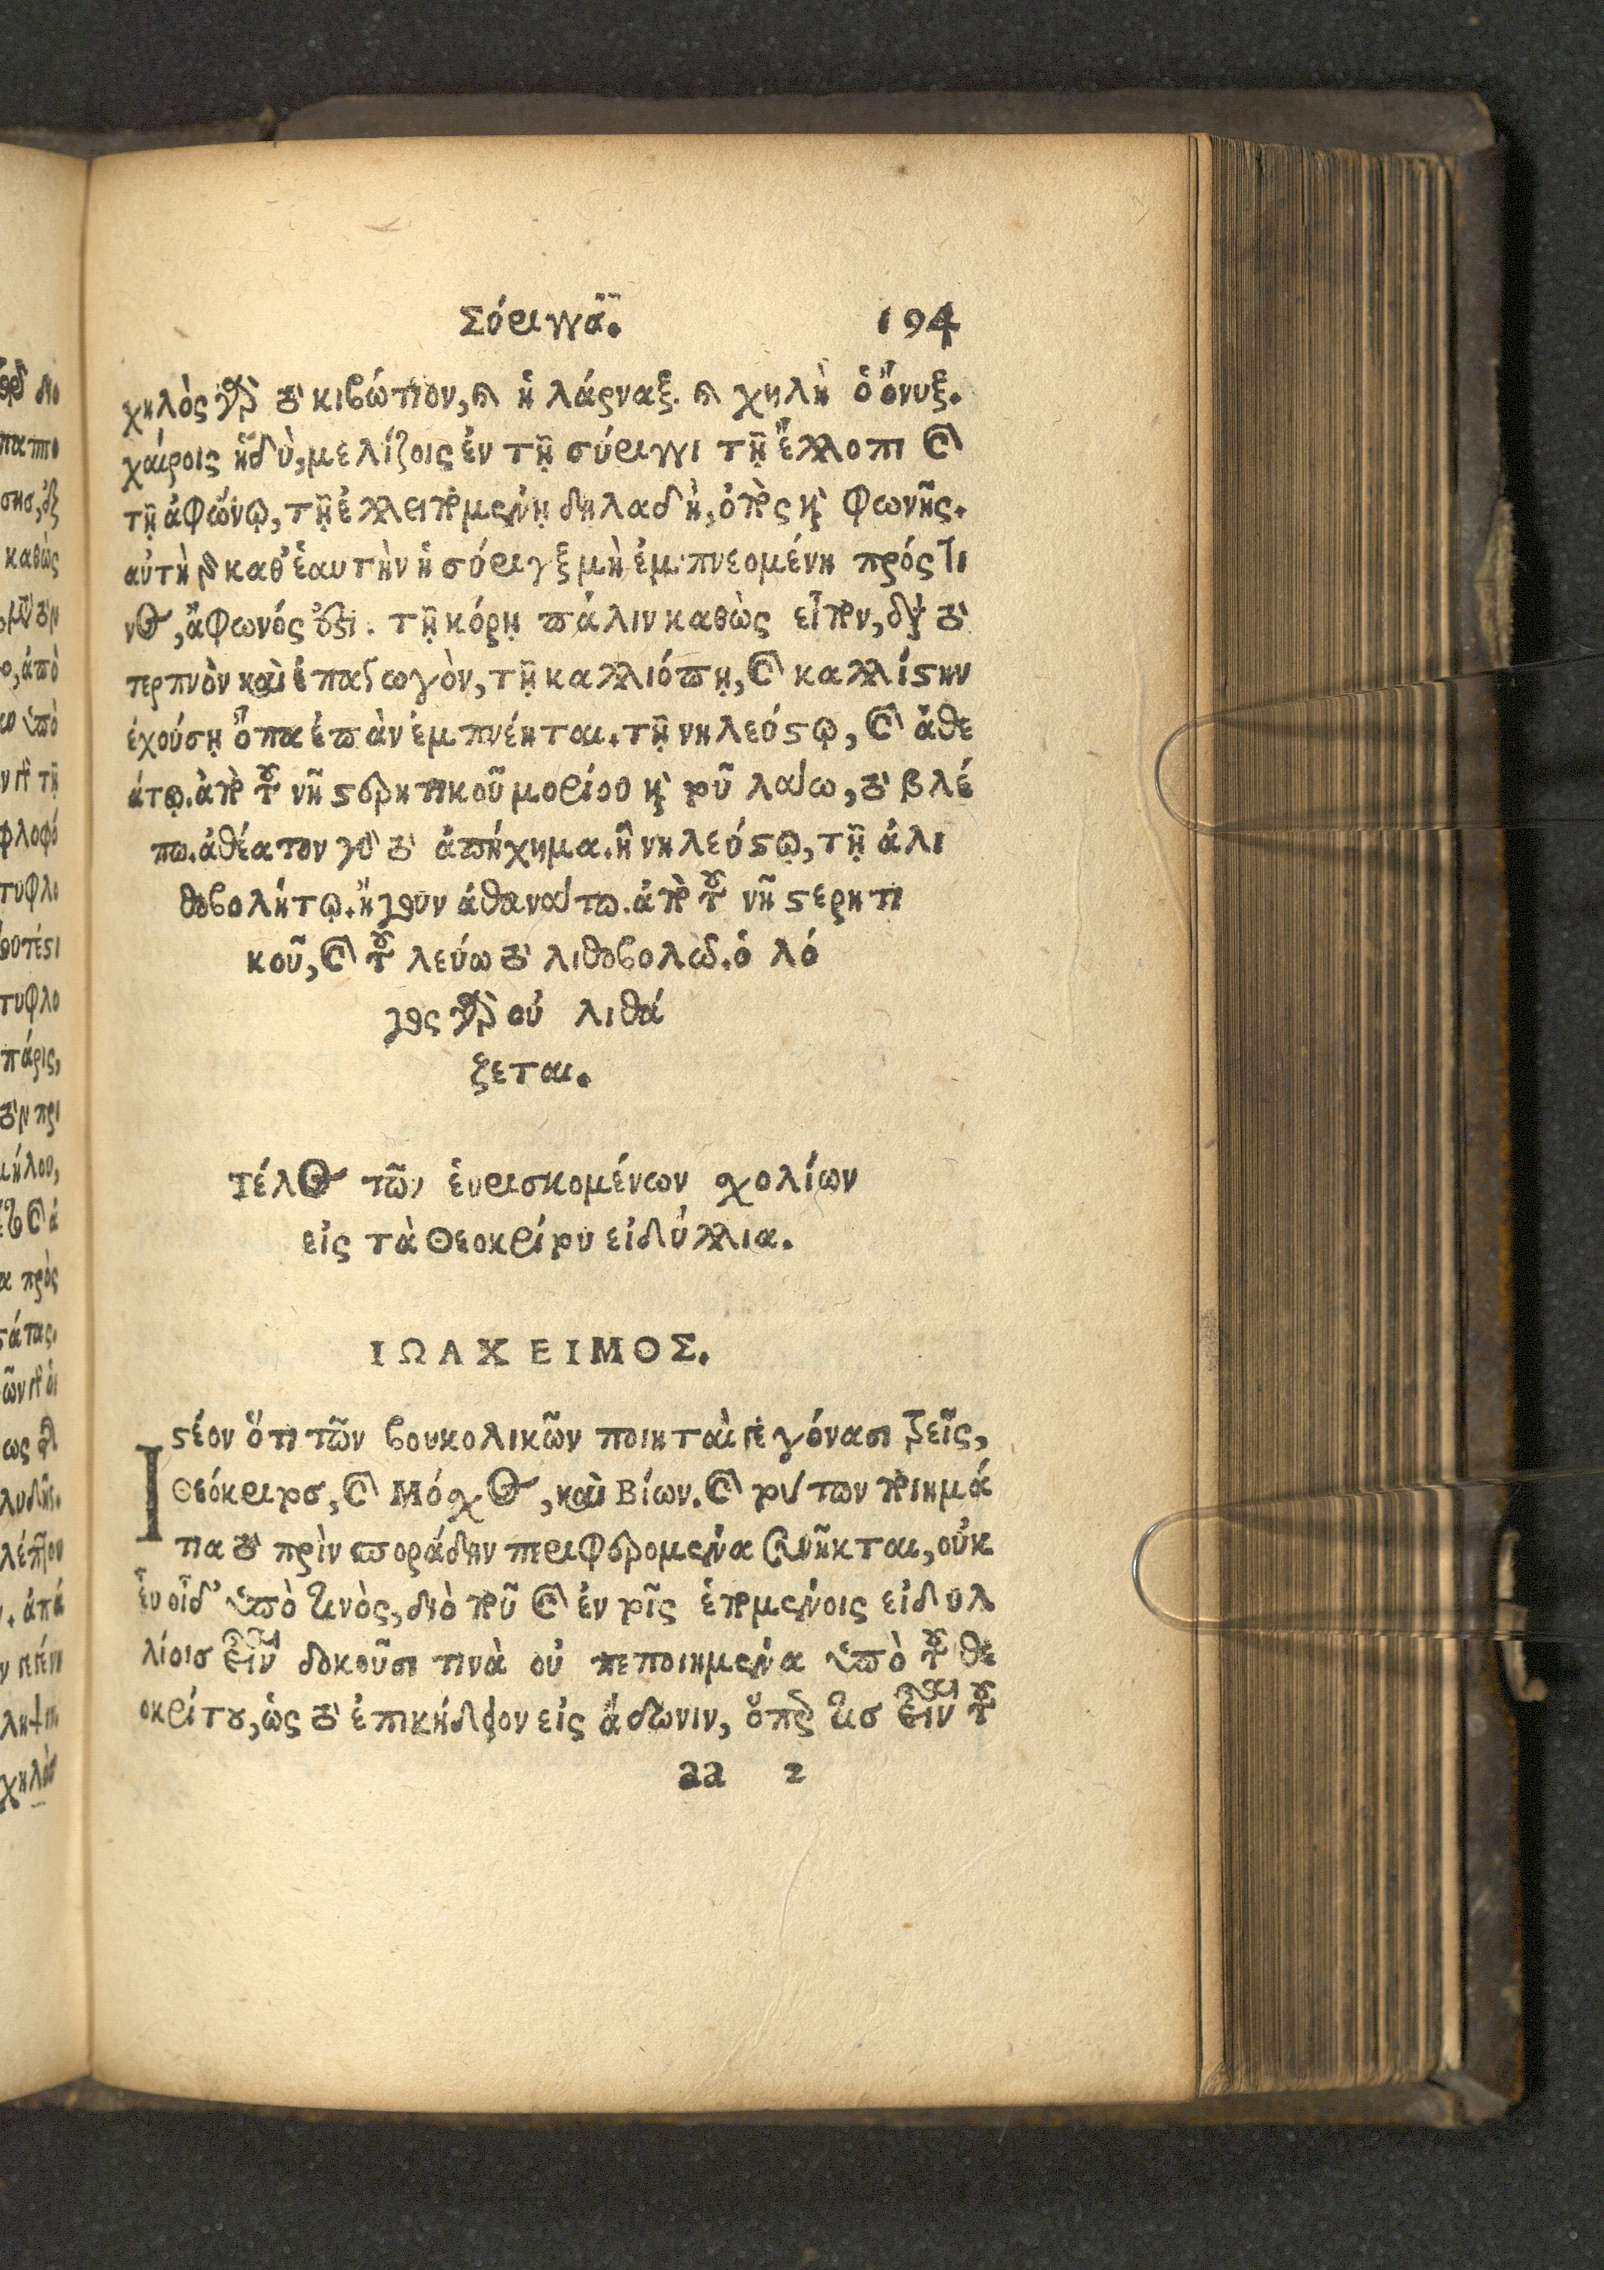 Σύριγγα. 194
χηλὸς γὰρ τὸ κιβώτιον, καὶ ἡ λάρναξ. καὶ χηλὴ ὁ ὄνυξ.
χαίροις ἡδὺ, μελίζοις ἐν τῇ σύριγγι τῇ ἔλλοπι καὶ
τῇ ἀφώνῳ, τῇ ἐλλειπομένῃ δηλαδὴ, ὀπὸς καὶ φωνῆς.
αὐτὴ γὰρ καθ' ἑαυτὴν ἡ σύριγξ μὴ ἐμπνεομένη πρός τι
νος, ἄφωνός ἐστι. τῇ κόρῃ πάλιν καθὼς εἶπον, διὰ τὸ
τερπνὸν καὶ ἐπαγωγὸν, τῇ καλλιόπῃ, καὶ καλλίστην
ἐχούσῃ ὄπα ἐπὰν ἐμπνέηται. τῇ νηλεύστῳ, καὶ ἀθε
άτῳ. ἀπὸ τοῦ νη στερητικοῦ μορίου καὶ τοῦ λάω, τὸ βλέ
πω. ἀθέατον γὰρ τὸ ἀπήχημα. ἢ νηλεύστῳ, τῇ ἀλι
θοβολήτῳ. ἤγουν ἀθανάτω. ἀπὸ τοῦ νη στερητι
κοῦ, καὶ τοῦ λεύω τὸ λιθοβολῶ. ὁ λό
γος γὰρ οὐ λιθά
ζεται.
Τέλος τῶν εὑρισκομένων σχολίων
εἰς τὰ Θεοκρίτου εἰδύλλια.
ΙΩΑΧΕΙΜΟΣ.
Ιστέον ὅτι τῶν βουκολικῶν ποιηταὶ γεγόνασι τρεῖς,
Θεόκριτος, καὶ Μόσχος, καὶ Βίων. καὶ τούτων ποιημά
τια τὸ πρὶν σποράδην περιφερόμενα συνῆκται, οὐκ
εὖ οἶδ' ὑπὸ τινὸς, διὸ που καὶ ἐν τοῖς ἑπομένοις εἰδυλ
λίοις εἶναι δοκοῦσι τινὰ οὐ πεποιημένα ὑπὸ τοῦ θε
οκρίτου, ὡς τὸ ἐπικήδειον εἰς ἄδωνιν, ὅπερ τισ εἶναι τοῦ
aa 2